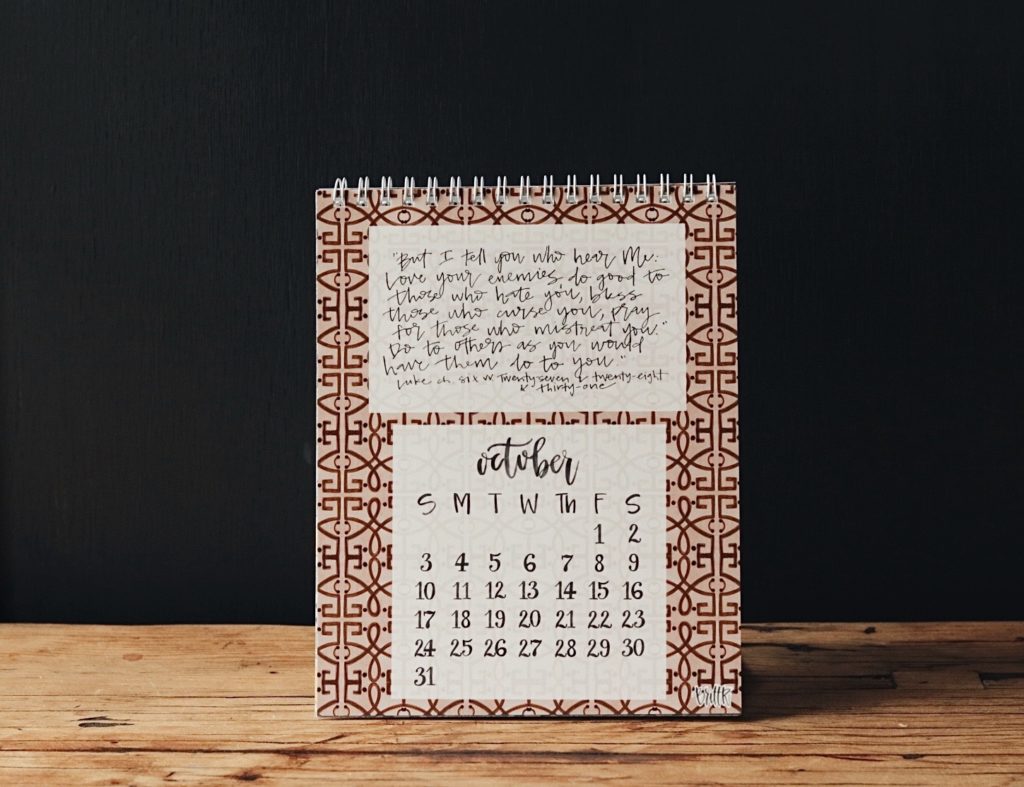 "But I tell you who hear Me:
Love your enemies, do good to
those who hate you, bless
those who curse you, pray
for those who mistreat you."
Do to others as you would
have them do to you."
Luke ch. six vv. Twenty-seven & twenty-eight
& thirty-one
october
S M T W Th F S
1 2
3 4 5 6 7 8 9
10 11 12 13 14 15 16
17 18 19 20 21 22 23
24 25 26 27 28 29 30
31